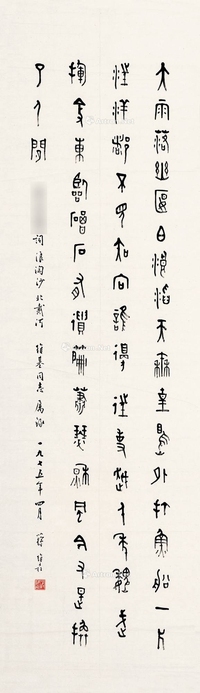 大雨落幽匽白浪滔天秦皇島外打魚船一片
汪洋都不見知向誰邊往事越千年魏武
揮鞭東臨碣石有遺篇蕭瑟秋風今又是換
了人間
詞浪淘沙北戴河 同志屬 一九七五年四月